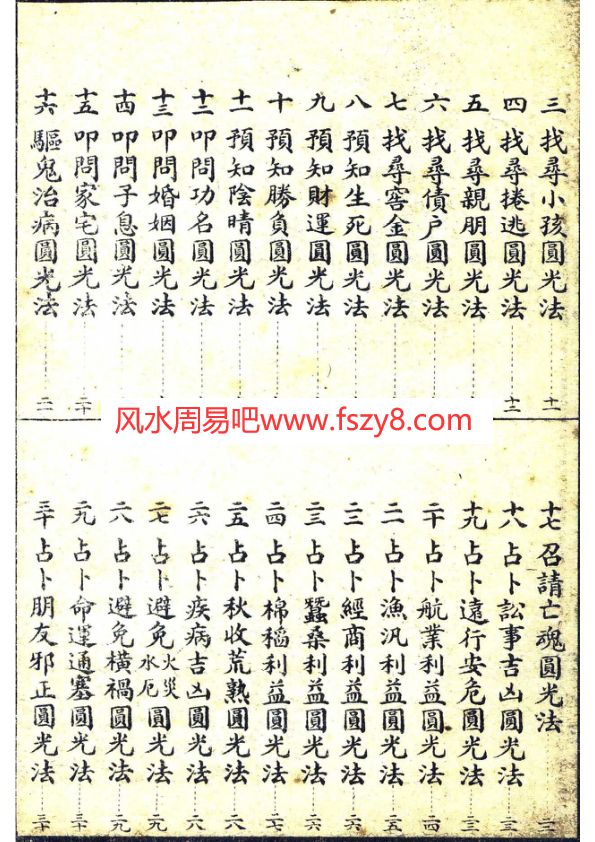 三 找尋小孩圓光法 十一
四 找尋捲逃圓光法 十二
五 找尋親朋圓光法
六 找尋債户圓光法
七 找尋窖金圓光法
八 預知生死圓光法
九 預知財運圓光法
十 預知勝負圓光法
十一 預知陰晴圓光法
十二 叩問功名圓光法
十三 叩問婚姻圓光法
十四 叩問子息圓光法
十五 叩問家宅圓光法 二十
十六 驅鬼治病圓光法 二一
风水周易吧www.fszy8.com
十七 召請亡魂圓光法 二二
十八 占卜訟事吉凶圓光法 二三
十九 占卜遠行安危圓光法 二三
二十 占卜航業利益圓光法 二四
二一 占卜漁汎利益圓光法 二五
二二 占卜經商利益圓光法 二六
二三 占卜蠶桑利益圓光法 二六
二四 占卜棉稻利益圓光法 二七
二五 占卜秋收荒熟圓光法 二八
二六 占卜疾病吉凶圓光法 二八
二七 占卜避免火災水厄圓光法 二九
二八 占卜避免橫禍圓光法 二九
二九 占卜命運通塞圓光法 三十
三十 占卜朋友邪正圓光法 三十